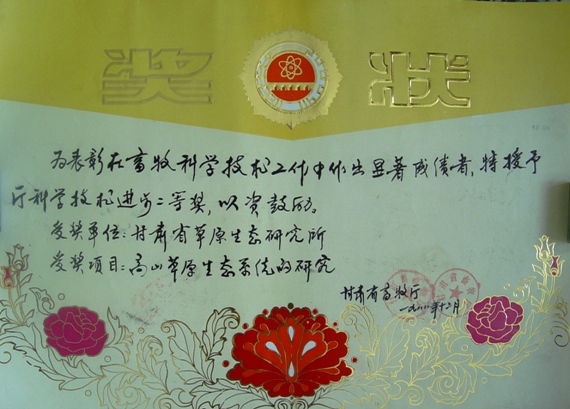 奖状
为表彰在畜牧科学技术工作中作出显著成绩者,特授予
厅科学技术进步二等奖,以资鼓励。
受奖单位:甘肃省草原生态研究所
受奖项目:高山草原生态系统的研究
甘肃省畜牧厅